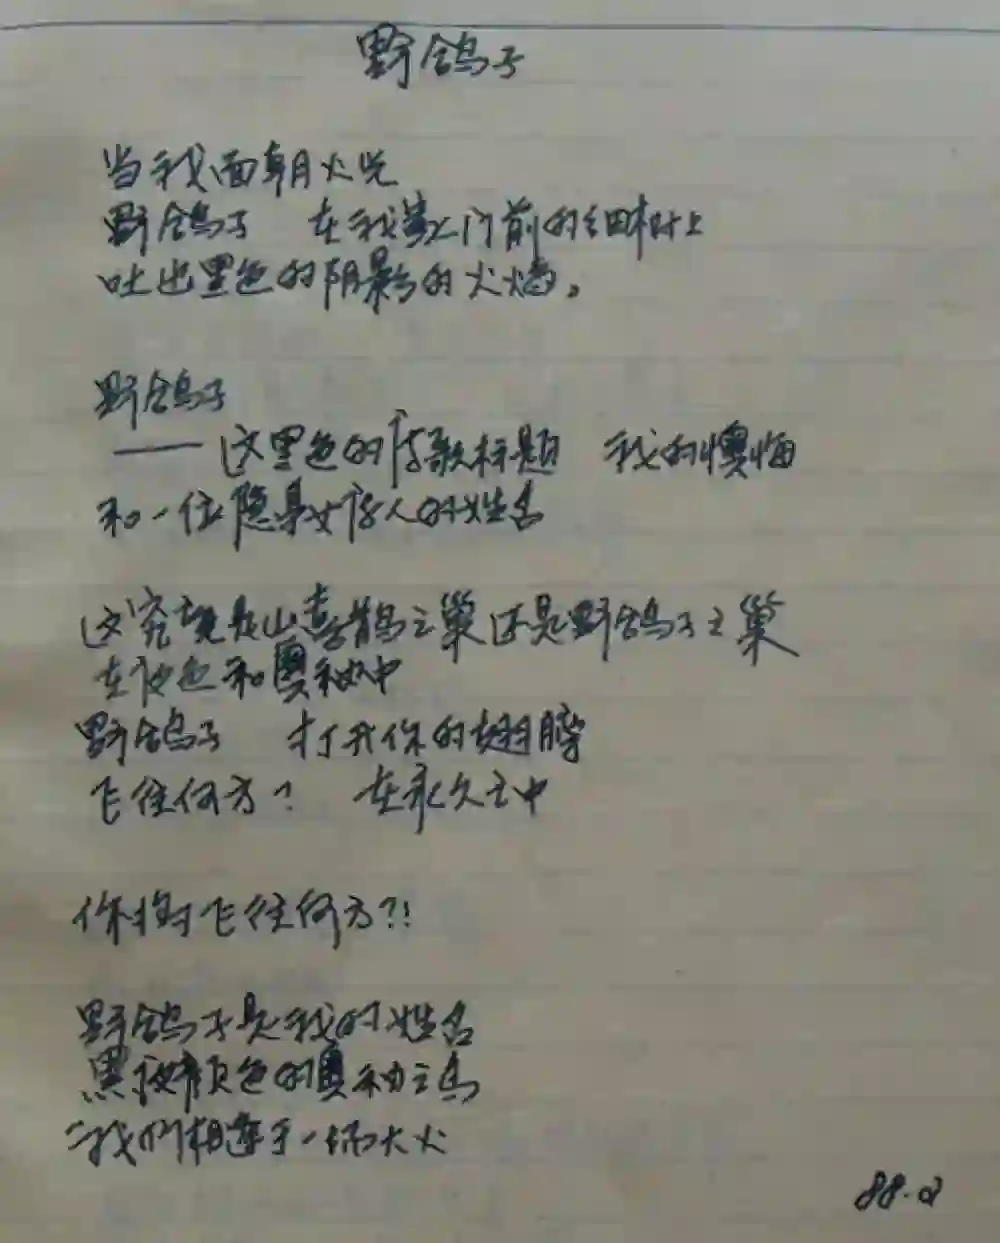 野鸽子
当我面朝火光
野鸽子 在我家门前的细树上
吐出黑色的阴影的火焰。
野鸽子
——这黑色的诗歌标题 我的懊悔
和一位隐身女诗人的姓名
这究竟是山喜鹊之巢还是野鸽子之巢
在夜色和奥秘中
野鸽子 打开你的翅膀
飞往何方? 在永久之中
你将飞往何方?!
野鸽子是我的姓名
黑夜颜色的奥秘之鸟
我们相逢于一场大火
88.2